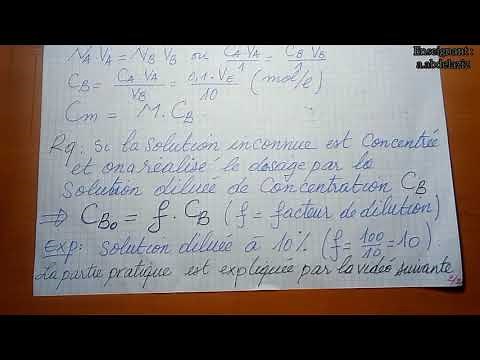 Enseignant :
a.abdelaziz
NA.VA = NB.VB ou CA.VA/1 = CB.VB/1
CB = CA.VA/VB = 0,1.VE/10 (mol/l)
Cm = M.CB.
Rq: Si la solution inconnue est concentrée
et on a réalisé le dosage par la
solution diluée de concentration CB
⇒ CB0 = f.CB (f = facteur de dilution)
Exp: solution diluée à 10% (f = 100/10 = 10).
La partie pratique est expliquée par la vidéo suivante
2/2